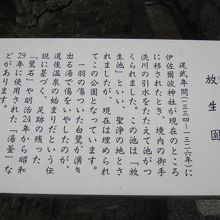 放生園
建武年間(一三三四〜一三三六年)に
伊佐爾波神社が現在のところ
に移されたとき、境内の御手
洗川の引水をたたえて池がつ
くられました。この池は「放
生池」といい、聖浄の地とさ
れましたが、現在は埋められ
てこの公園になっています。
一羽の傷ついた白鷺が湧き
出る湯で傷をいやしたのが、
道後温泉の始まりだという伝
説から、足跡の残った
「鷺石」や明治24年から昭和
29年に使用された「湯釜」な
どがあります。